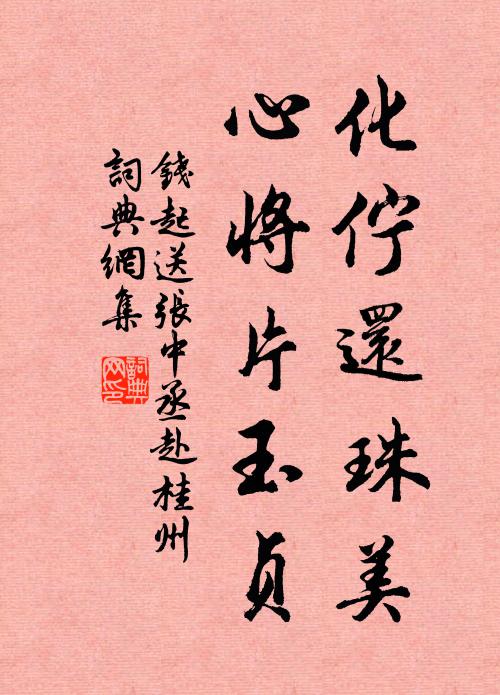 化佇還珠美
心將片玉貞
錢起送張中丞赴桂州
詞典網集
詞典網印